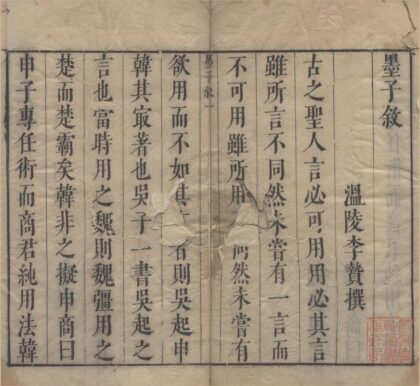 墨子敘
溫陵李贄撰
古之聖人言必可用用必其言
雖所言不同然未嘗有一言而
不可用雖所用不同然未嘗有
墨子敘 一
欲用而不如其言者則吳起申
韓其寂著也吳子一書吳起之
言也當時用之魏則魏彊用之
楚而楚霸矣韓非之擬申商曰
申子專任術而商君純用法韓